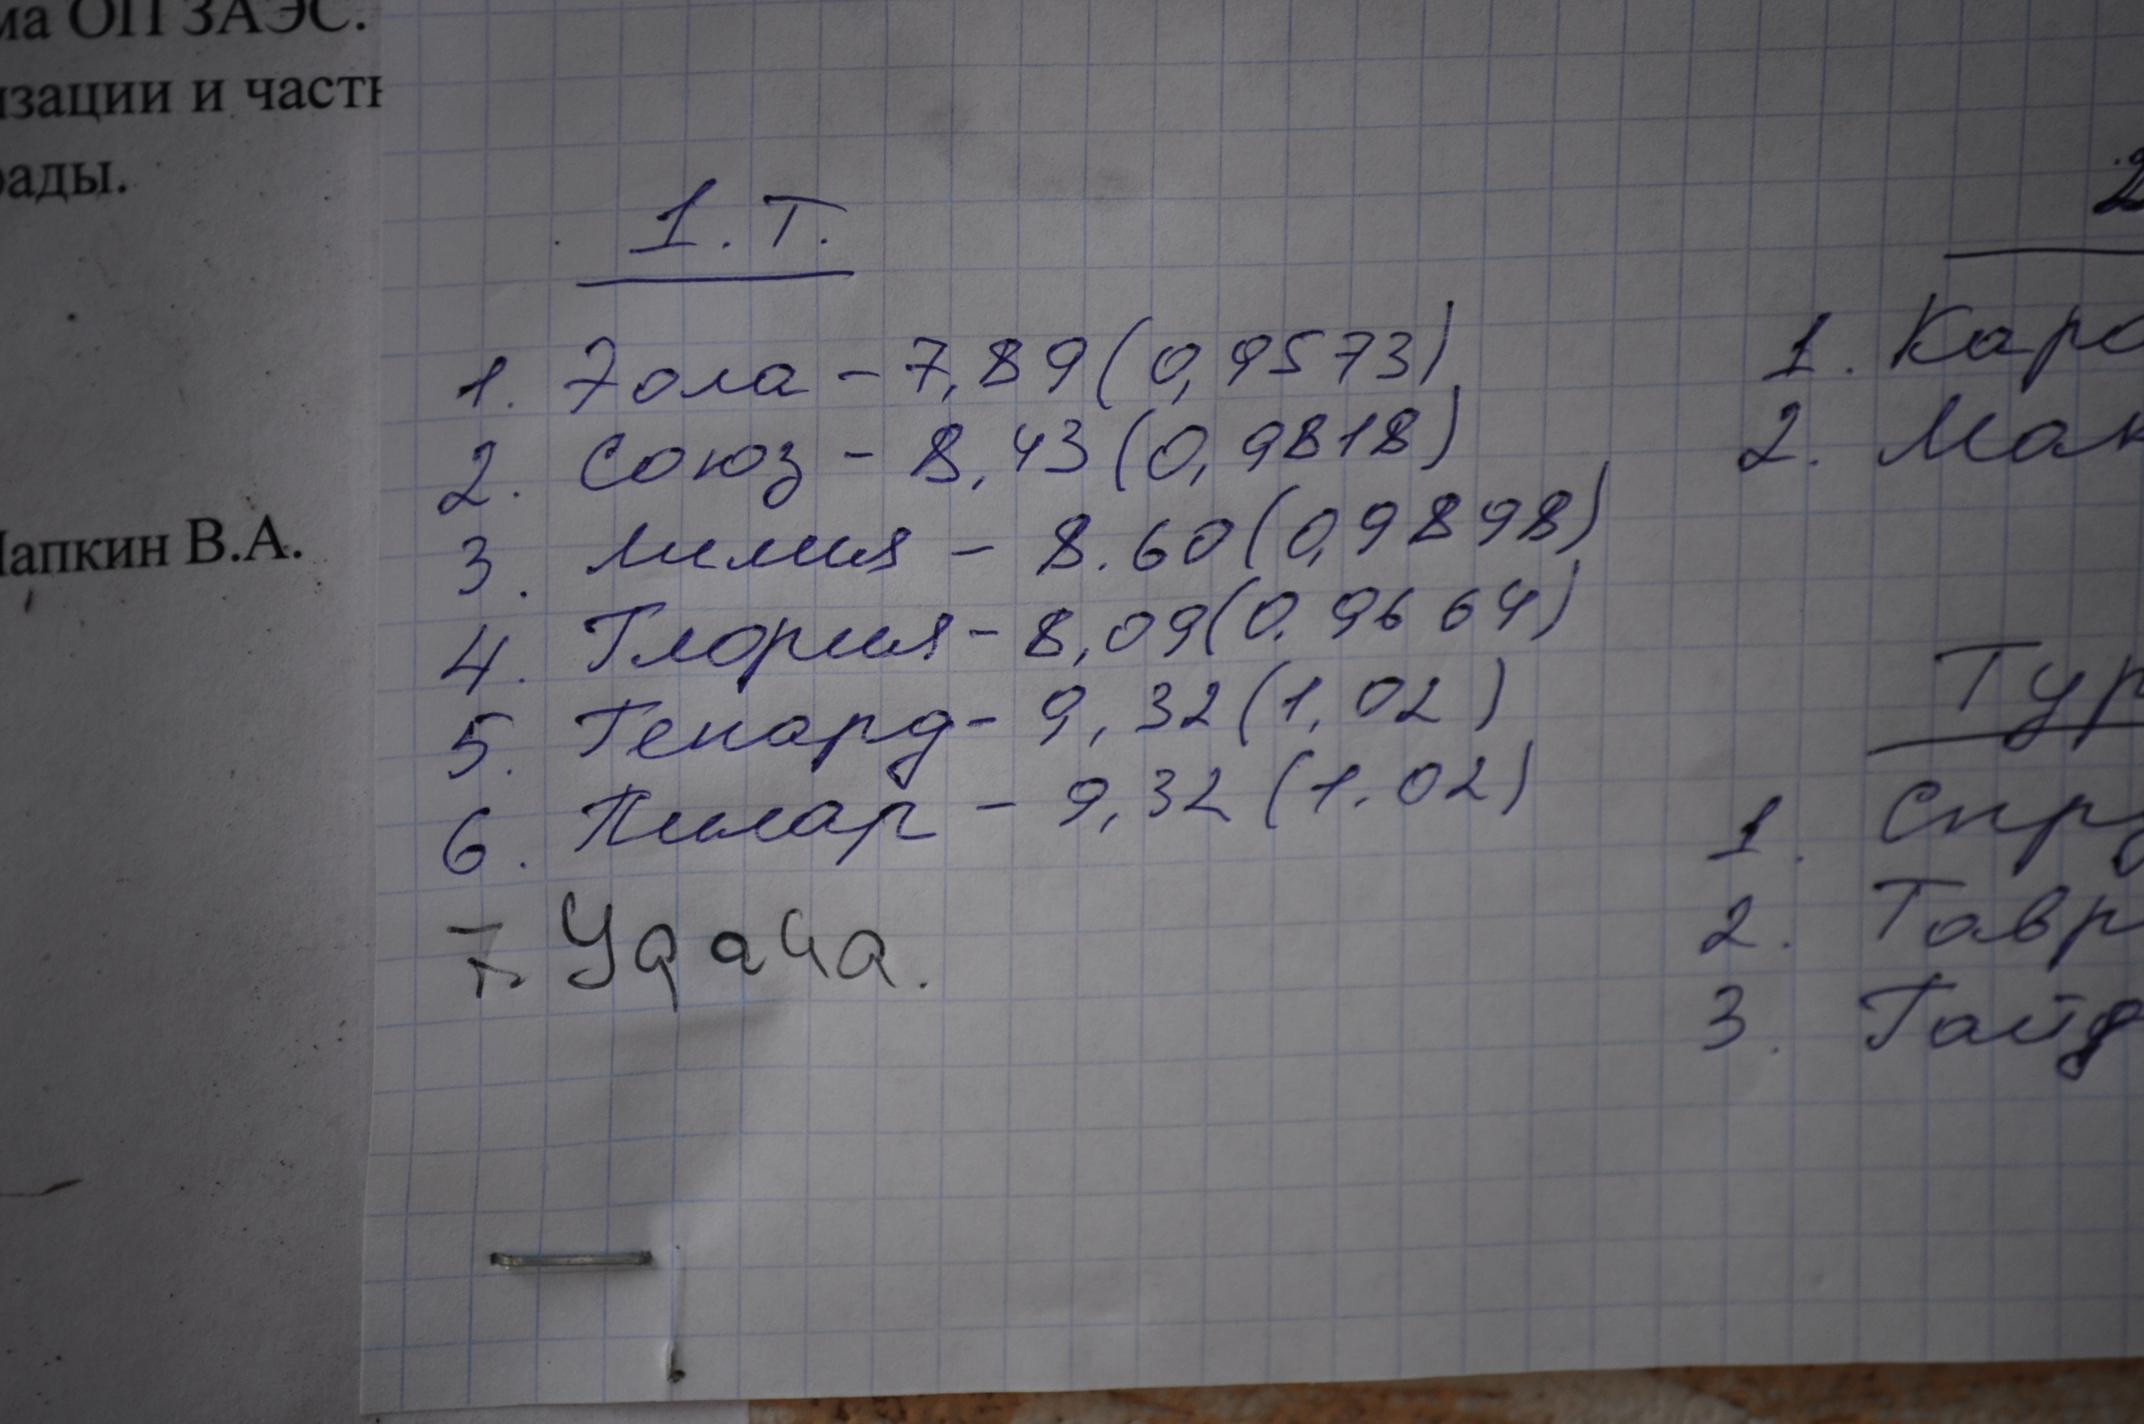 ма ОП ЗАЭС.
изации и част
рады.
Чапкин В.А.
1.Т.
1. Эола – 7,89 (0,9573)
2. Союз – 8,43 (0,9818)
3. Лилия – 8.60 (0,9898)
4. Глория – 8,09 (0.9664)
5. Генард – 9,32 (1,02)
6. Пилар – 9,32 (1.02)
7. Удача.
2
1. Каро
2. Мак
Тур
1. Спр
2. Тавр
3. Гайд